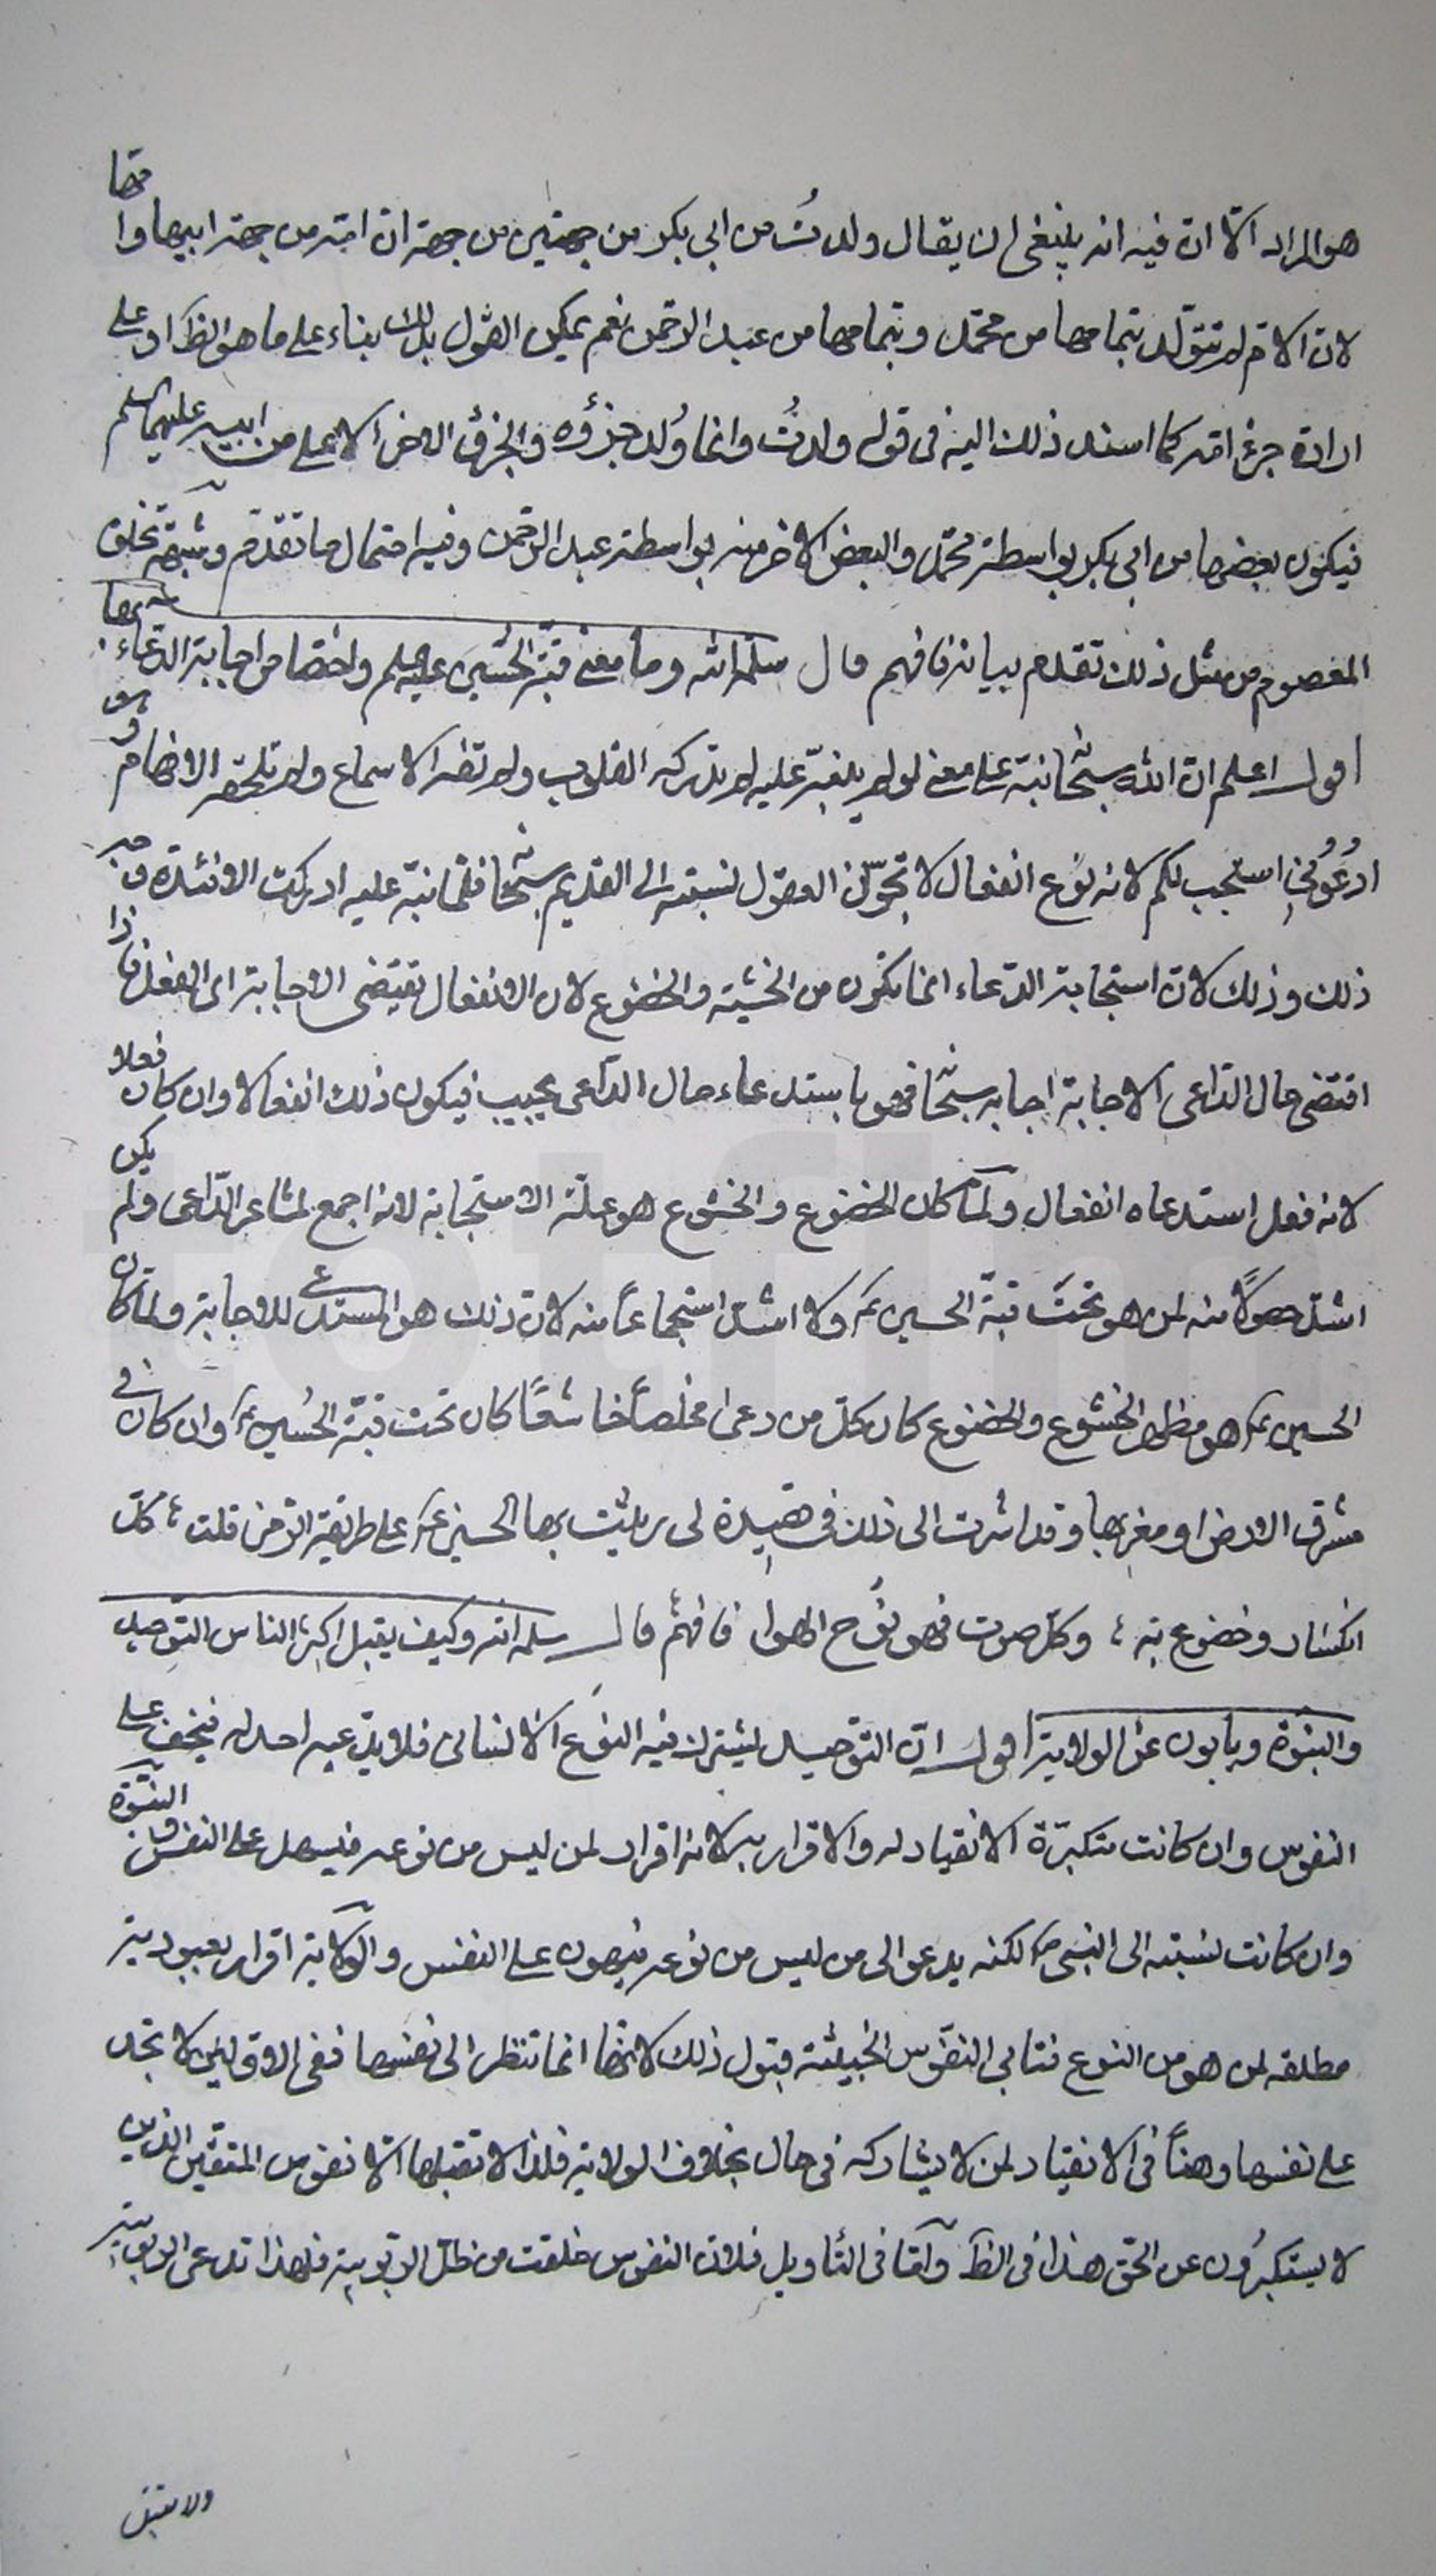 هو المراد الّا انّ فيه انه ينبغى ان يقال ولدتُ من ابى بكر من جهتين من جهة انّ امّه من جهة ابيها وامّها
لانّ الامّ لم تتولّد بتمامها من محمّد وبتمامها من عبد الرحمن نعم يمكن القول بذلك بناء على ما هو الظ او على
ارادة جزء امّه كما اسند ذلك اليه فى قوله ولدتُ وانما وُلد جزؤه والجزؤ الاخر الاعلى من ابيه عليهما السلم
فيكون بعضها من ابى بكر بواسطة محمّد والبعض الاخر منه بواسطة عبد الرحمن وفيه احتمال ما تقدّم وشبهة تخلق
المعصوم من مثل ذلك تقدم بيانه فافهم قال سلمه الله وما معنى قبّة الحسين عليه السلم واختصاص اجابة الدعاء تحتها
اقول اعلم انّ الله سبحانه نبّه على معنى لو لم ينبّه عليه لم تدركه القلوب ولم تقه الاسماع ولم تلحقه الافهام وهو
ادعُونى استجب لكم لانه نوع انفعال لا تجوّز العقول نسبته الى القديم سبحانه فلما نبّه عليه ادركت الافئدة وجه
ذلك وذلك لانّ استجابة الدعاء انما تكون من الخشية والخضوع لان الانفعال يقتضى الاجابة اى الفعل فاذا
اقتضى حال الداعى الاجابة اجابه سبحانه فهو باستدعاء حال الداعى يجيب فيكون ذلك انفعالا وان كان فعلا
لانه فعل استدعاه انفعال ولمّا كان الخضوع والخشوع هو علّة الاستجابة لانه اجمع لمشاعر الدّاعى ولم يكن
اشدّ حصولًا منه لمن هو تحت قبّة الحسين ع ولا اشدّ استجماعاً منه لانّ ذلك هو المستدعى للاجابة ولمّا كان
الحسين ع هو مظهر الخشوع والخضوع كان كلّ من دعى مخلصاً خاشعًا كان تحت قبّة الحُسين ع وان كان فى
مشرق الارض او مغربها وقد اشرت الى ذلك فى قصيدة لى رثيت بها الحسين ع على طريقة الرمز قلت ، كلّ
انكسار وخضوع به ، وكلّ صوت فهو نوُح الهوا فافهم قال سلمه الله وكيف يقبل اكثر الناس التوحيد
والنبوّة ويأبون عن الولاية اقول انّ التوحيد ليشترك فيه النوع الانسانى فلا يدّعيه احد له فيخف على
النفوس وان كانت متكبرّة الانقياد له والاقرار به لانه اقرار لمن ليس من نوعه فيسهل على النفس والنبوّة
وان كانت نسبته الى النبى ص لكنه يدعو الى من ليس من نوعه فيهون على النفس والولاية اقرار بعبودية
مطلقه لمن هو من النوع فتابى النفوس الخبيثة قبول ذلك لانها انما تنظر الى نفسها ففى الاوّلين لا تجد
على نفسها وهناً فى الانقياد لمن لا يشاركه فى حال بخلاف الولاية فلذا لا تقبلها الّا نفوس المتقين الذين
لا يستكبرُون عن الحق هذا فى الظ وامّا فى التأويل فلانّ النفوس خلقت من ظلّ الربوبية فلهذا تدعى الربوبية
ولا تقبل